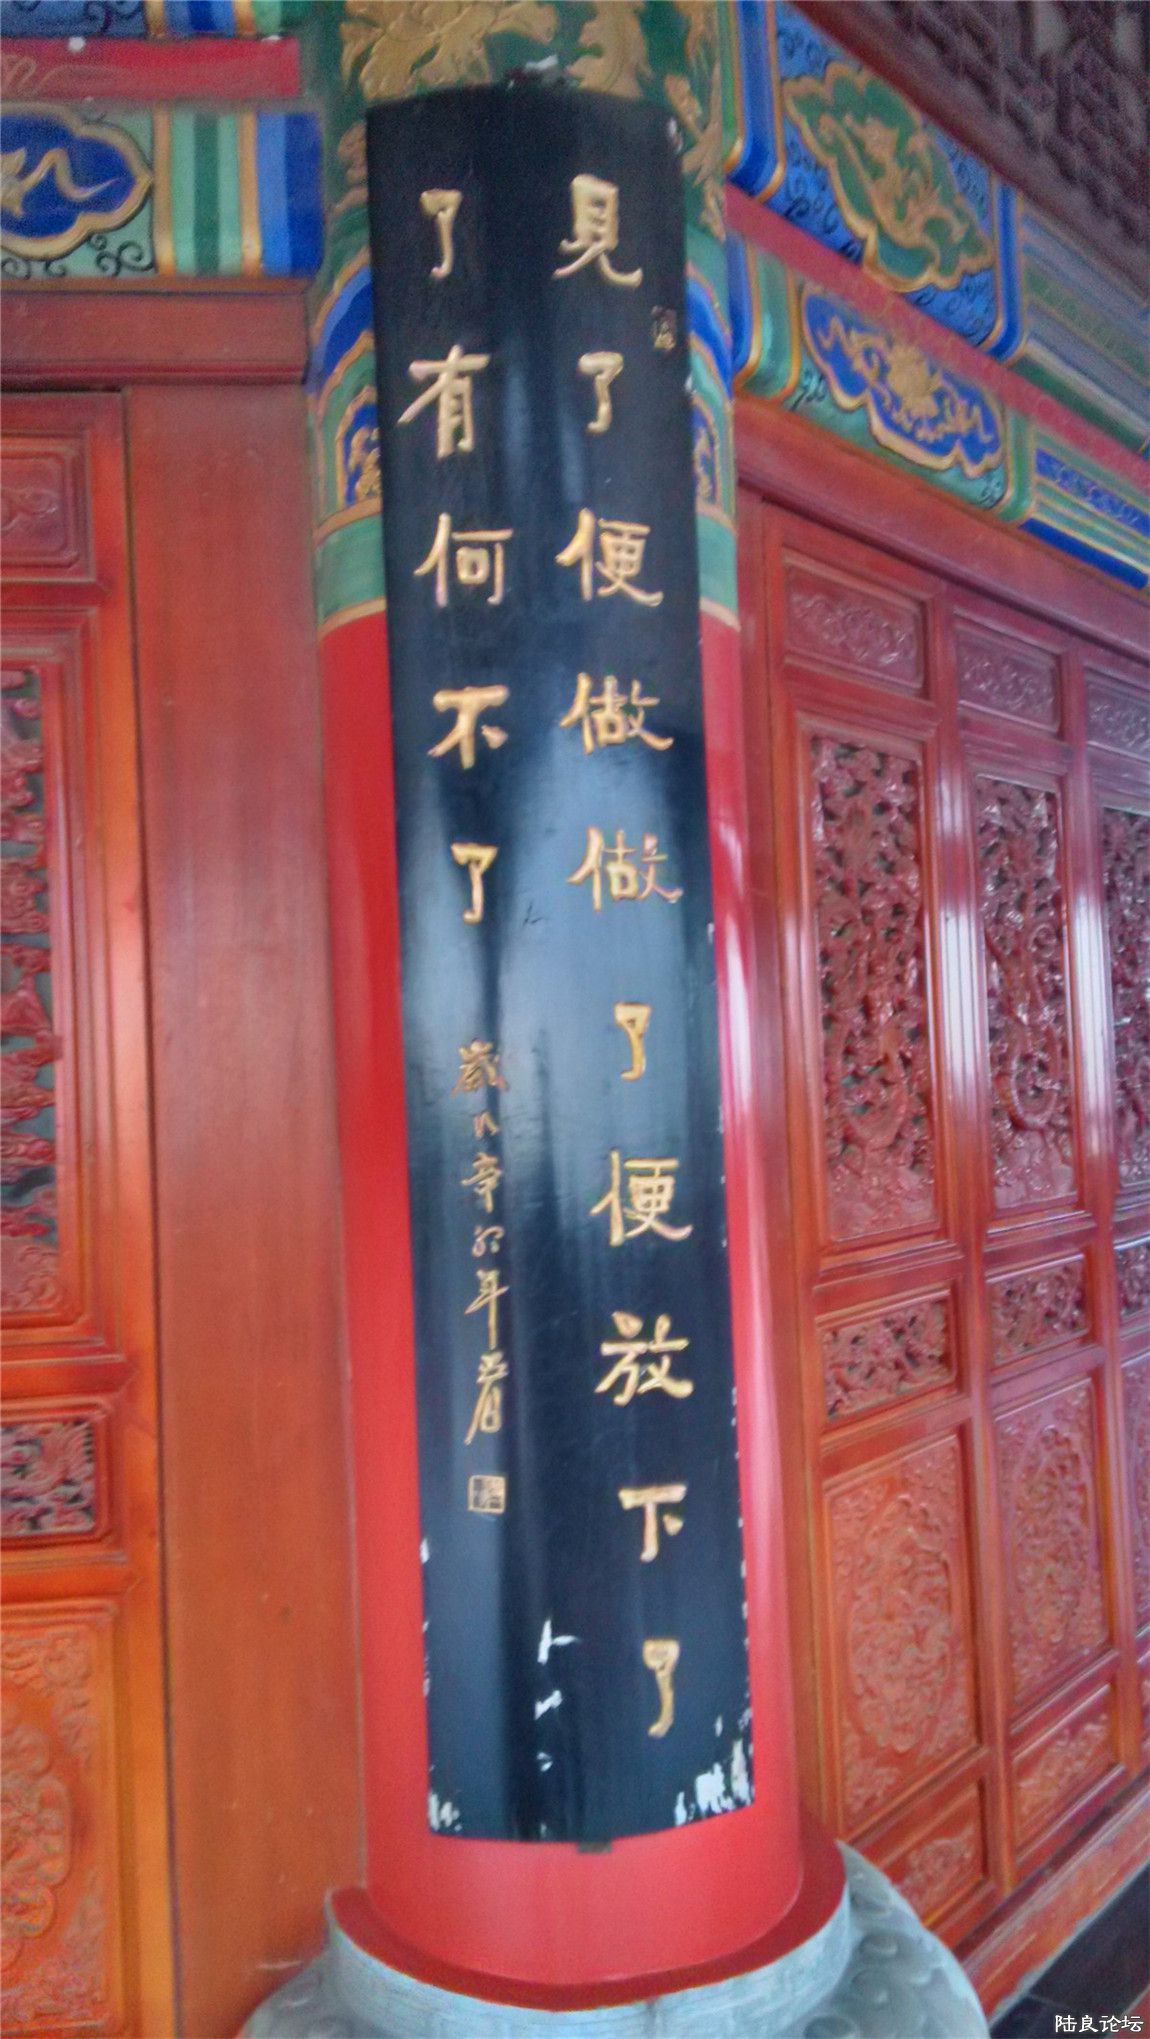 見了便做做了便放下了
了有何不了
歲次辛卯年春
陆良论坛